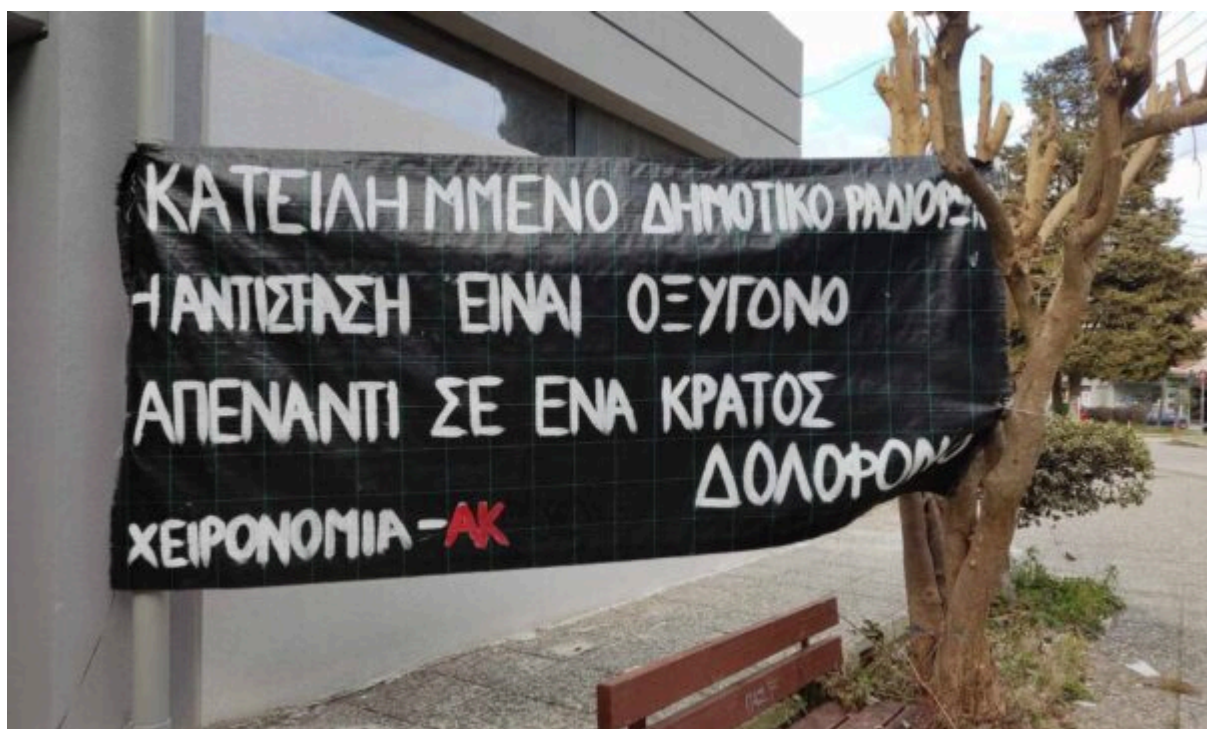 ΚΑΤΕΙΛΗΜΜΕΝΟ ΔΗΜΟΤΙΚΟ
Η ΑΝΤΙΣΤΑΣΗ ΕΙΝΑΙ ΟΞΥΓΟΝΟ
ΑΠΕΝΑΝΤΙ ΣΕ ΕΝΑ ΚΡΑΤΟΣ
ΧΕΙΡΟΝΟΜΙΑ-ΑΚ